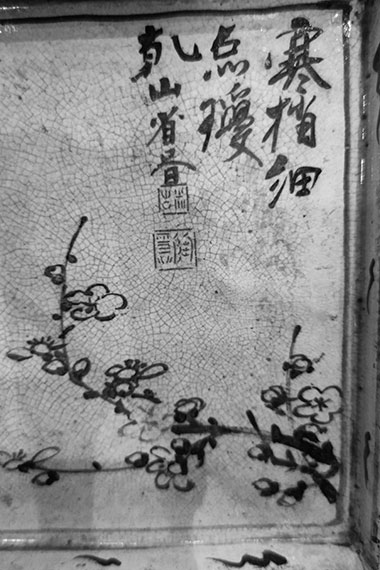 寒梢細
点瓊
乾山省書